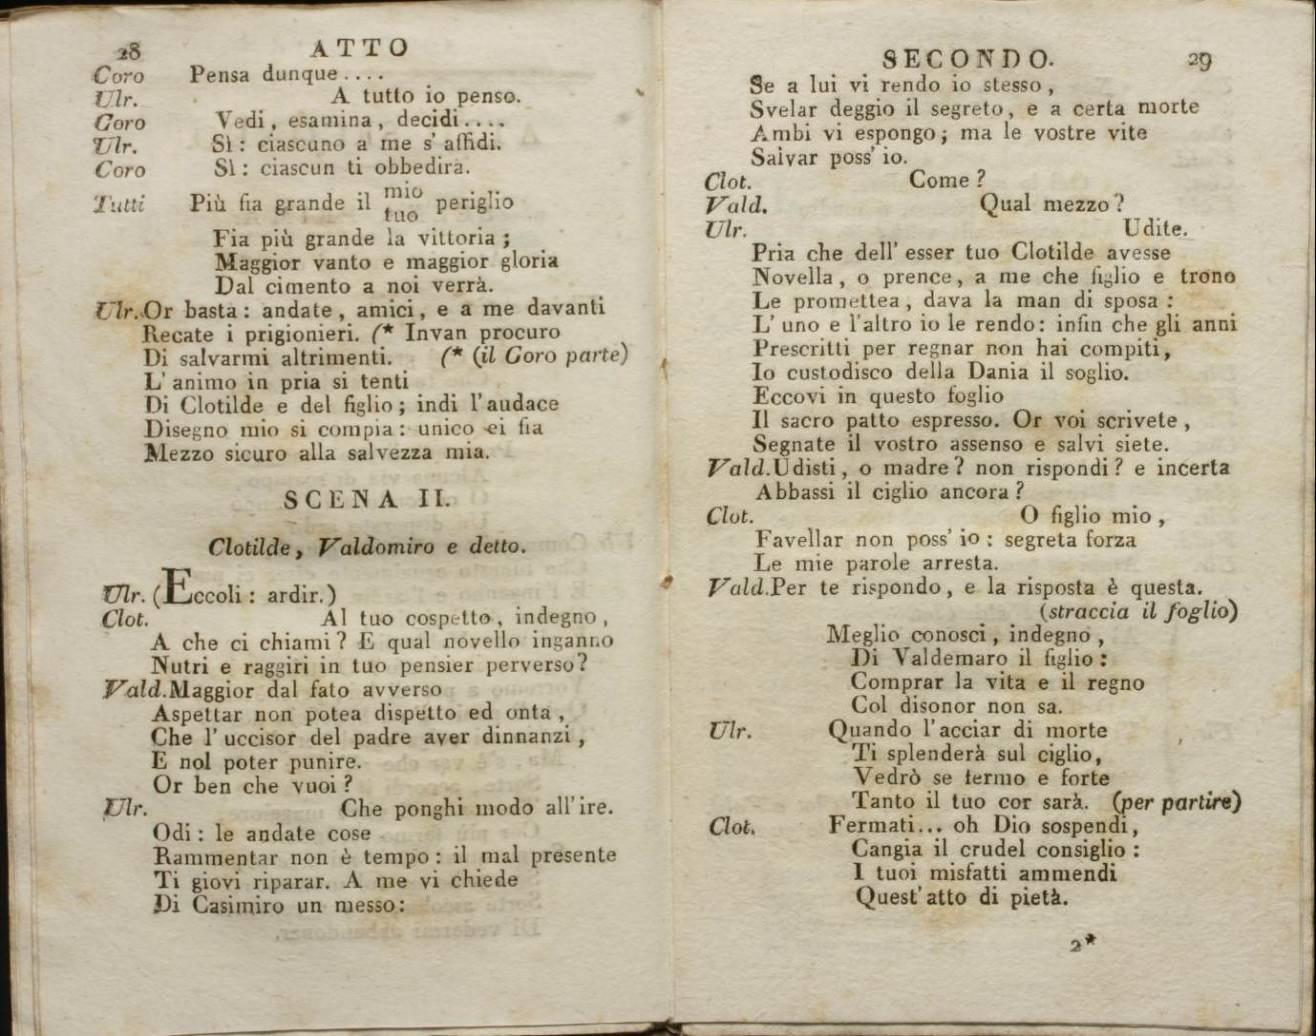 28
ATTO
Coro Pensa dunque....
Ulr. A tutto io penso.
Coro Vedi, esamina, decidi....
Ulr. Sì: ciascuno a me s' affidi.
Coro Sì: ciascun ti obbedirà.
Tutti Più fia grande il mio tuo periglio
Fia più grande la vittoria;
Maggior vanto e maggior gloria
Dal cimento a noi verrà.
Ulr. Or basta: andate, amici, e a me davanti
Recate i prigionieri. (* Invan procuro
Di salvarmi altrimenti. (* (il Coro parte)
L' animo in pria si tenti
Di Clotilde e del figlio; indi l' audace
Disegno mio si compia: unico ei fia
Mezzo sicuro alla salvezza mia.
SCENA II.
Clotilde, Valdomiro e detto.
Ulr. (Eccoli: ardir.)
Clot. Al tuo cospetto, indegno,
A che ci chiami? E qual novello inganno
Nutri e raggiri in tuo pensier perverso?
Vald. Maggior dal fato avverso
Aspettar non potea dispetto ed onta,
Che l' uccisor del padre aver dinnanzi,
E nol poter punire.
Or ben che vuoi?
Ulr. Che ponghi modo all' ire.
Odi: le andate cose
Rammentar non è tempo: il mal presente
Ti giovi riparar. A me vi chiede
Di Casimiro un messo:
SECONDO.
29
Se a lui vi rendo io stesso,
Svelar deggio il segreto, e a certa morte
Ambi vi espongo; ma le vostre vite
Salvar poss' io.
Clot. Come?
Vald. Qual mezzo?
Ulr. Udite.
Pria che dell' esser tuo Clotilde avesse
Novella, o prence, a me che figlio e trono
Le promettea, dava la man di sposa:
L' uno e l'altro io le rendo: infin che gli anni
Prescritti per regnar non hai compiti,
Io custodisco della Dania il soglio.
Eccovi in questo foglio
Il sacro patto espresso. Or voi scrivete,
Segnate il vostro assenso e salvi siete.
Vald. Udisti, o madre? non rispondi? e incerta
Abbassi il ciglio ancora?
Clot. O figlio mio,
Favellar non poss' io: segreta forza
Le mie parole arresta.
Vald. Per te rispondo, e la risposta è questa.
(straccia il foglio)
Meglio conosci, indegno,
Di Valdemaro il figlio:
Comprar la vita e il regno
Col disonor non sa.
Ulr. Quando l' acciar di morte
Ti splenderà sul ciglio,
Vedrò se fermo e forte
Tanto il tuo cor sarà. (per partire)
Clot. Fermati... oh Dio sospendi,
Cangia il crudel consiglio:
I tuoi misfatti ammendi
Quest' atto di pietà.
2*